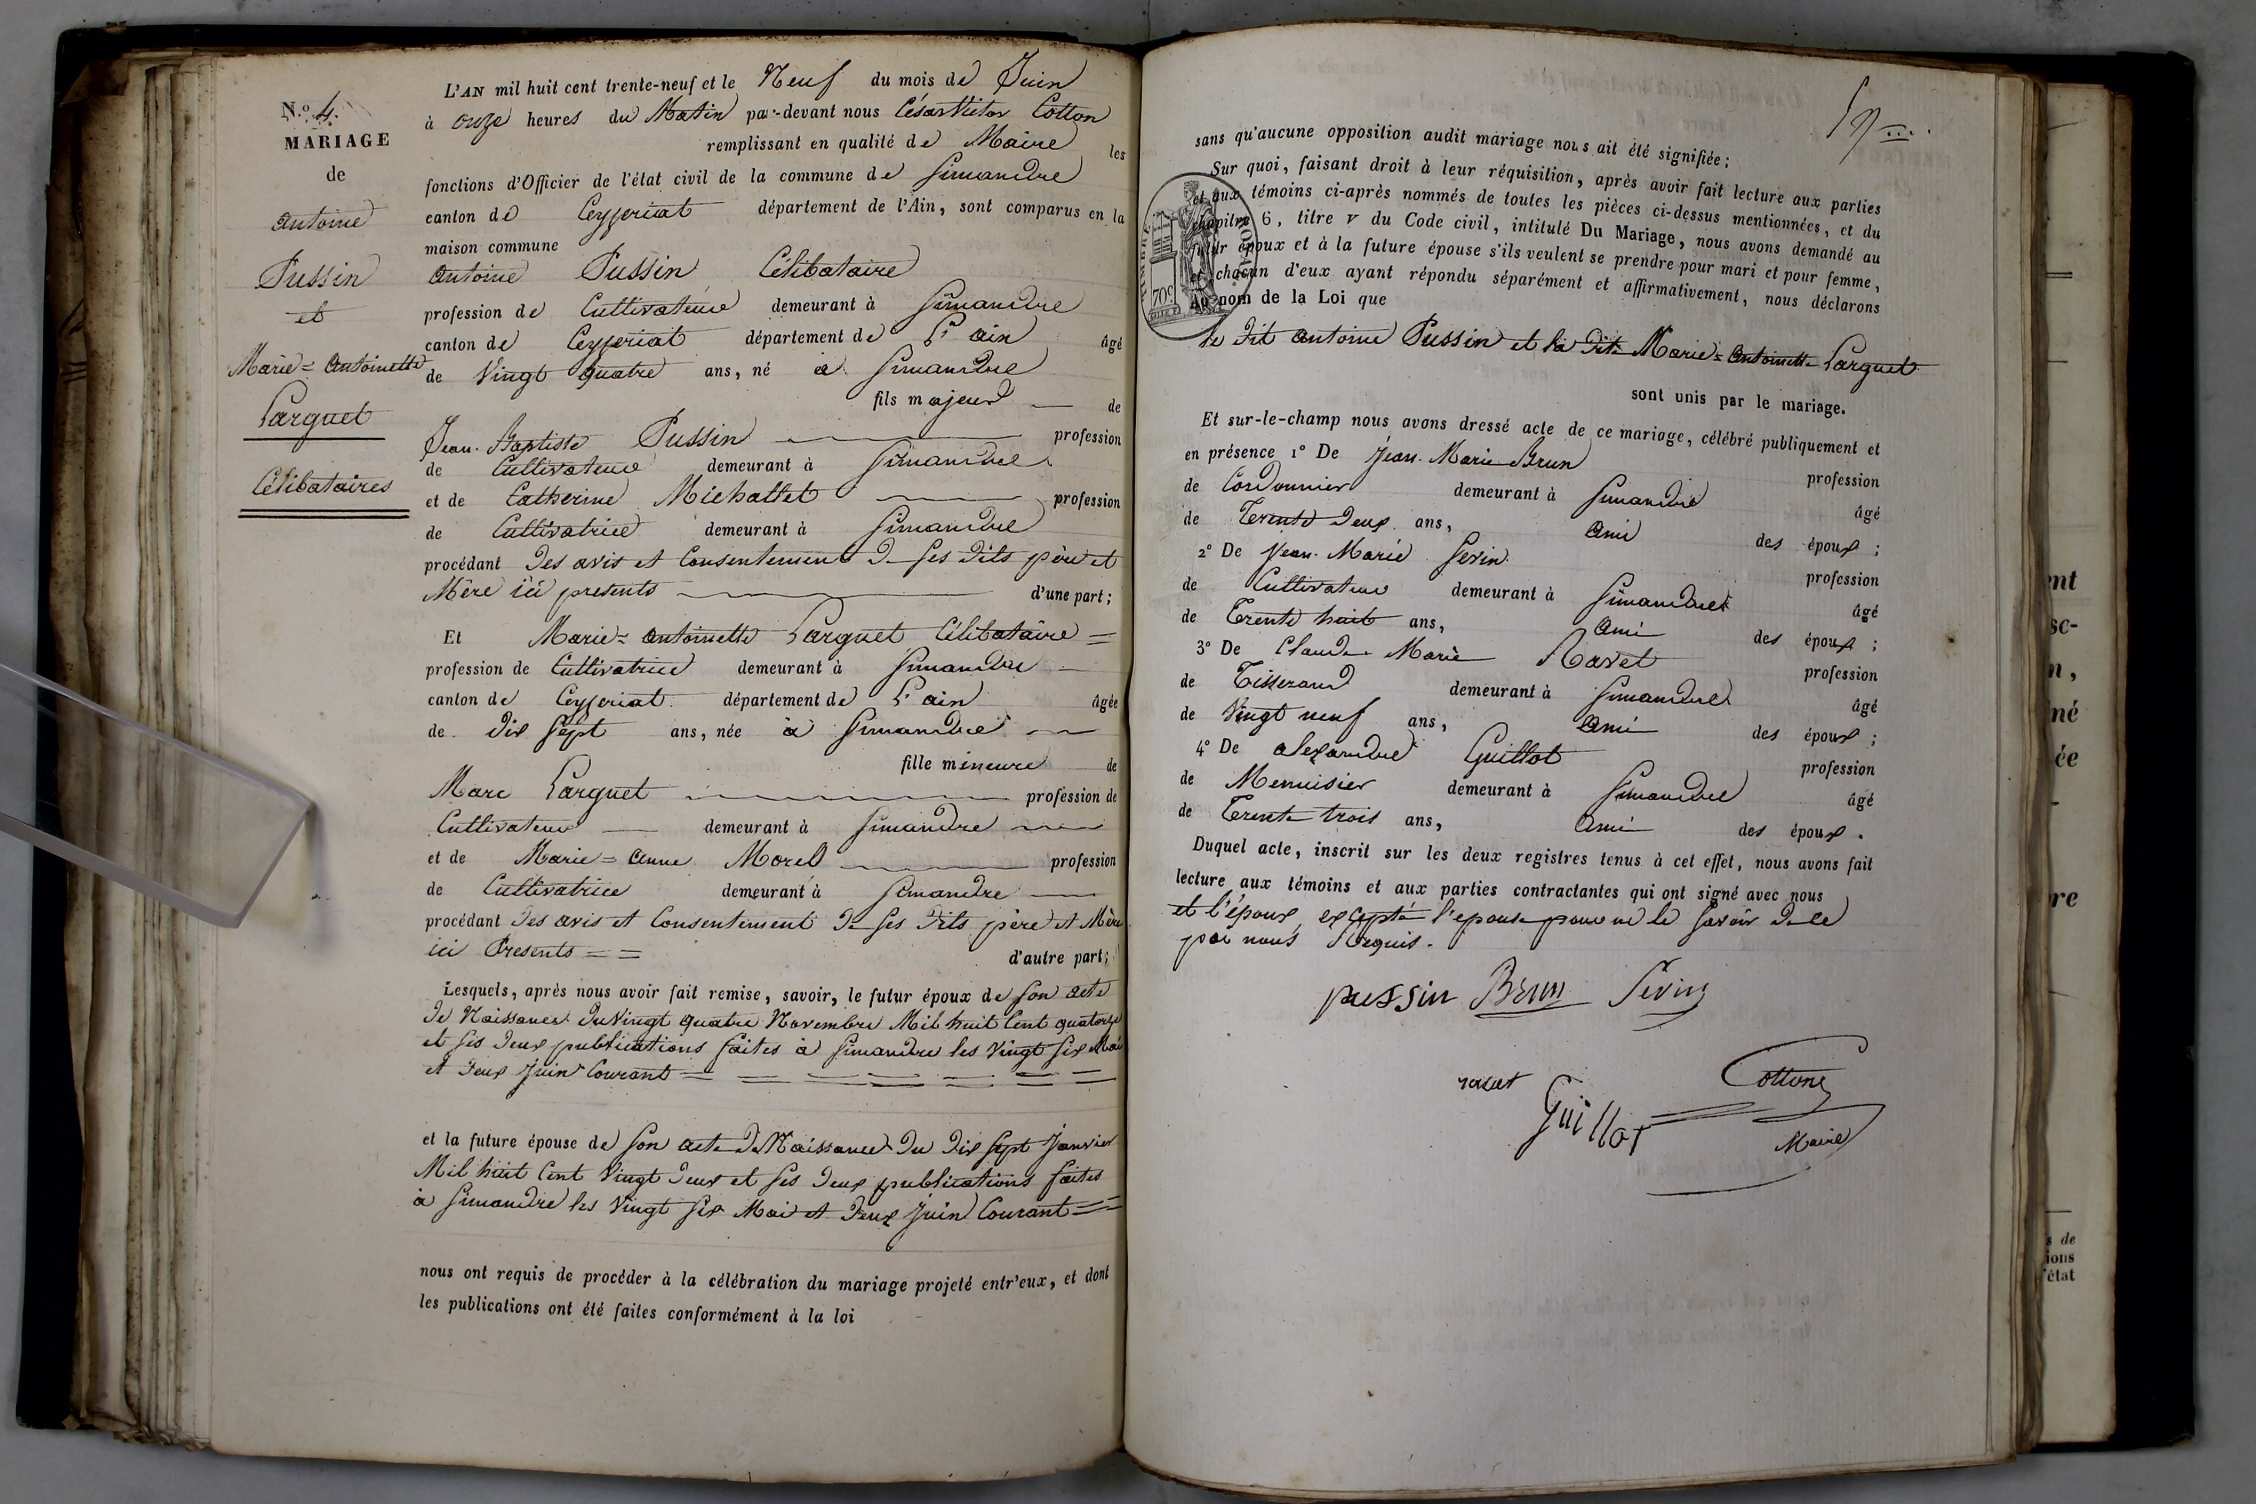 N.o 4.
MARIAGE
de
Antoine
Pussin
et
Marie = Antoinette
Larguet
Célibataires
L'AN mil huit cent trente-neuf et le Neuf du mois de Juin
à onze heures du Matin par-devant nous César Victor Cotton
remplissant en qualité de Maire les
fonctions d'Officier de l'état civil de la commune de Simandre
canton de Ceyzeriat département de l'Ain, sont comparus en la
maison commune
Antoine Pussin Célibataire
profession de Cultivateur demeurant à Simandre
canton de Ceyzeriat département de L'ain âgé
de Vingt quatre ans, né à Simandre
fils majeur de
Jean-Baptiste Pussin profession
de Cultivateur demeurant à Simandre
et de Catherine Michallet profession
de Cultivatrice demeurant à Simandre
procédant des avis et Consentement de ses dits père et
Mère ici presents d'une part;
Et Marie = Antoinette Larguet Célibataire =
profession de Cultivatrice demeurant à Simandre
canton de Ceyzeriat département de L'ain âgée
de Dix Sept ans, née à Simandre
fille mineure de
Marc Larguet profession de
Cultivateur demeurant à Simandre
et de Marie = Anne Morel profession
de Cultivatrice demeurant à Simandre
procédant des avis et Consentement de ses dits père et Mère
ici Presents = = d'autre part;
Lesquels, après nous avoir fait remise, savoir, le futur époux de son acte
de Naissance du Vingt quatre Novembre Mil huit Cent quatorze
et ses deux publications faites à Simandre les Vingt six Mai
et deux Juin Courant
et la future épouse de son acte de Naissance du dix sept Janvier
Mil huit Cent Vingt deux et ses deux publications faites
à Simandre les Vingt six Mai et deux Juin Courant
nous ont requis de procéder à la célébration du mariage projeté entr'eux, et dont
les publications ont été faites conformément à la loi
sans qu'aucune opposition audit mariage nous ait été signifiée;
Sur quoi, faisant droit à leur réquisition, après avoir fait lecture aux parties
et aux témoins ci-après nommés de toutes les pièces ci-dessus mentionnées, et du
chapitre 6, titre v du Code civil, intitulé Du Mariage, nous avons demandé au
futur époux et à la future épouse s'ils veulent se prendre pour mari et pour femme,
et chacun d'eux ayant répondu séparément et affirmativement, nous déclarons
Au nom de la Loi que
TIMBRE ROYAL
70c
le dit Antoine Pussin et la dite Marie = Antoinette Larguet
sont unis par le mariage.
Et sur-le-champ nous avons dressé acte de ce mariage, célébré publiquement et
en présence 1° De Jean-Marie Brun profession
de Cordonnier demeurant à Simandre âgé
de Trente deux ans, Ami des époux;
2° De Jean-Marie Sevin profession
de Cultivateur demeurant à Simandre âgé
de Trente huit ans, Ami des époux;
3° De Claude Marie Ravet profession
de Tisserand demeurant à Simandre âgé
de Vingt neuf ans, Ami des époux;
4° De Alexandre Guillot profession
de Menuisier demeurant à Simandre âgé
de Trente trois ans, Ami des époux.
Duquel acte, inscrit sur les deux registres tenus à cet effet, nous avons fait
lecture aux témoins et aux parties contractantes qui ont signé avec nous
et l'époux, excepté l'epouse pour ne le savoir de ce
par nous Requis.
pussin Brun Sevin
ravet Cottone
Guillot
Maire
ent
sc-
n,
né
ée
re
s de
ions
l'état